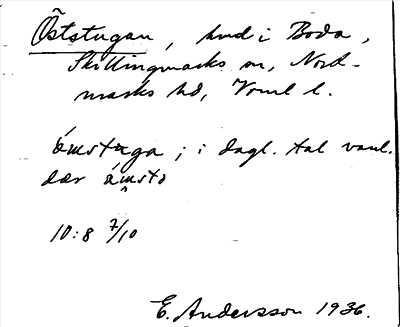 Öststugan, hmd i Boda,
Skillingmarks sn, Nord-
marks hd, Vrml l.
ámstuga; i dagl. tal vanl.
dær ámsto
10:8 7/10
E. Andersson 1936.